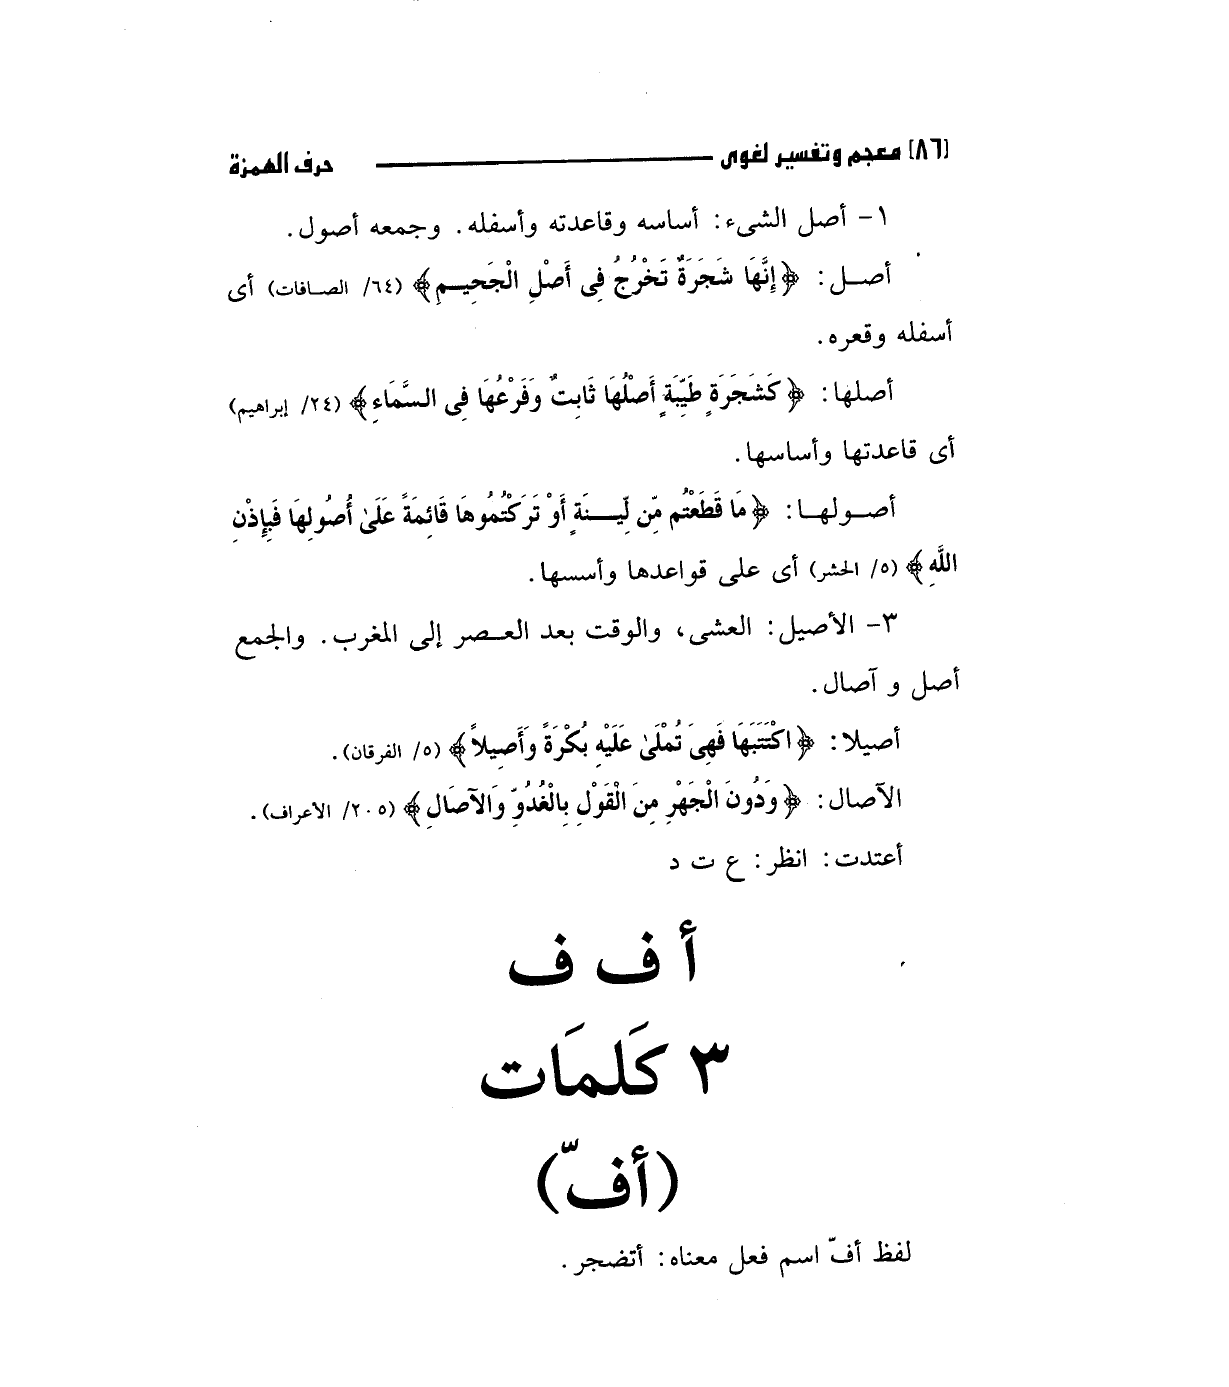 [٨٦] معجم وتفسير لغوى حرف الهمزة
١- أصل الشىء: أساسه وقاعدته وأسفله. وجمعه أصول.
أصل: ﴿إِنَّهَا شَجَرَةٌ تَخْرُجُ فِى أَصْلِ الْجَحِيمِ﴾ (٦٤/ الصافات) أى
أسفله وقعره.
أصلها: ﴿كَشَجَرَةٍ طَيِّبَةٍ أَصْلُهَا ثَابِتٌ وَفَرْعُهَا فِى السَّمَاءِ﴾ (٢٤/ إبراهيم)
أى قاعدتها وأساسها.
أصولها: ﴿مَا قَطَعْتُم مِّن لِّينَةٍ أَوْ تَرَكْتُمُوهَا قَائِمَةً عَلَىٰ أُصُولِهَا فَبِإِذْنِ
اللَّهِ﴾ (٥/ الحشر) أى على قواعدها وأسسها.
٣- الأصيل: العشى، والوقت بعد العصر إلى المغرب. والجمع
أصل و آصال.
أصيلا: ﴿اكْتَتَبَهَا فَهِىَ تُمْلَىٰ عَلَيْهِ بُكْرَةً وَأَصِيلاً﴾ (٥/ الفرقان).
الآصال: ﴿وَدُونَ الْجَهْرِ مِنَ الْقَوْلِ بِالْغُدُوِّ وَالآصَالِ﴾ (٢٠٥/ الأعراف).
أعتدت: انظر: ع ت د
أ ف ف
٣ كَلمَات
(أفّ)
لفظ أفّ اسم فعل معناه: أتضجر.